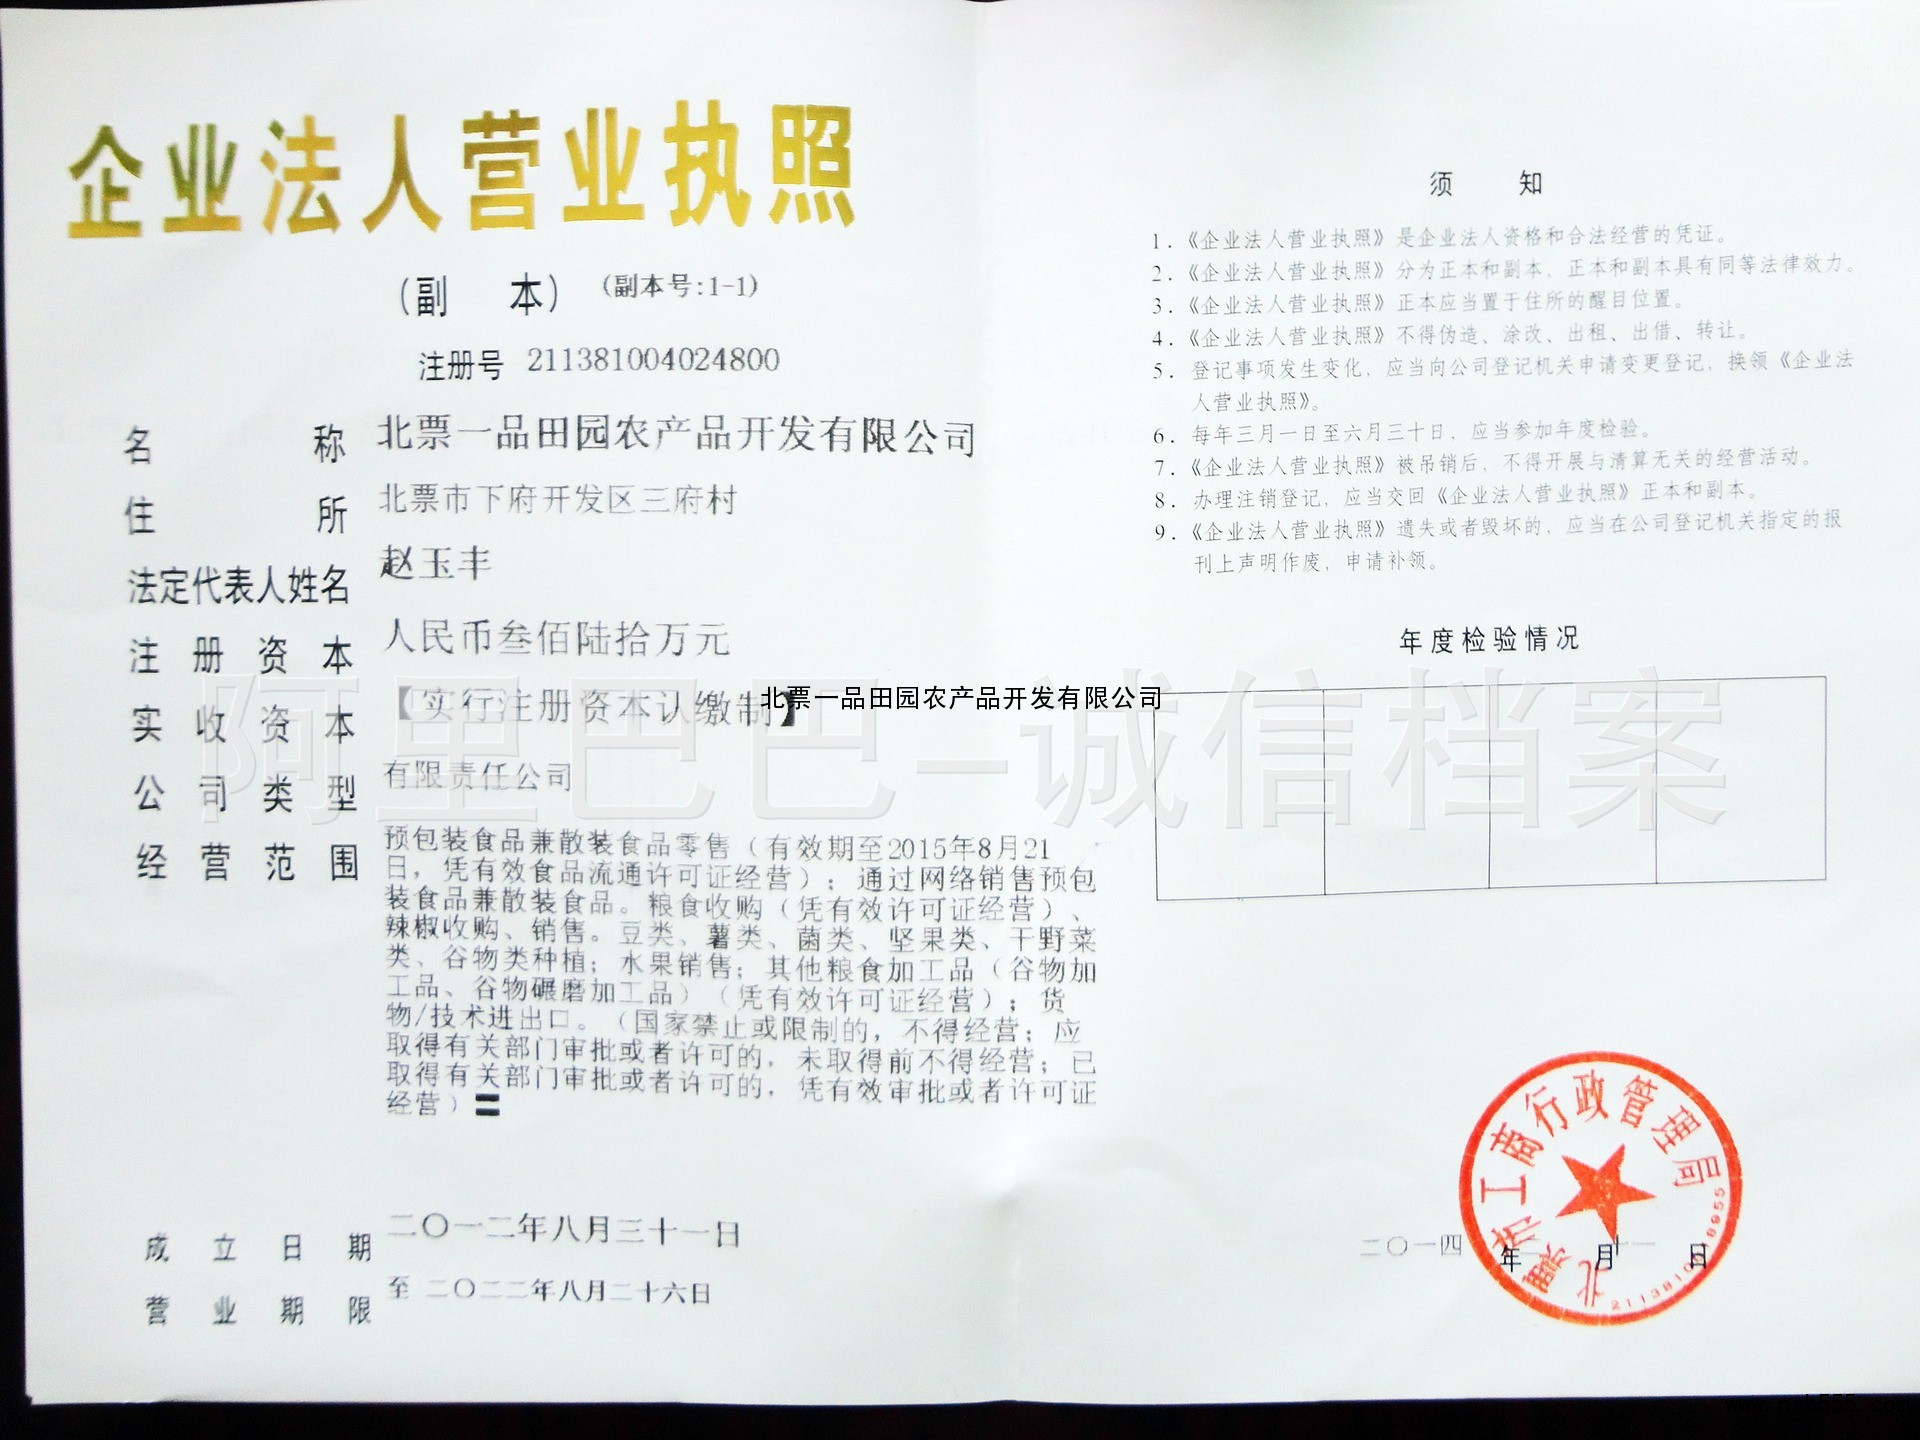 企业法人营业执照
（副 本） (副本号:1-1)
注册号 211381004024800
名 称 北票一品田园农产品开发有限公司
住 所 北票市下府开发区三府村
法定代表人姓名 赵玉丰
注册资本 人民币叁佰陆拾万元
实收资本 【实行注册资本认缴制】
公司类型 有限责任公司
经营范围 预包装食品兼散装食品零售（有效期至2015年8月21
日，凭有效食品流通许可证经营）；通过网络销售预包
装食品兼散装食品。粮食收购（凭有效许可证经营）、
辣椒收购、销售。豆类、薯类、菌类、坚果类、干野菜
类、谷物类种植；水果销售；其他粮食加工品（谷物加
工品、谷物碾磨加工品）（凭有效许可证经营）；货
物/技术进出口。（国家禁止或限制的，不得经营；应
取得有关部门审批或者许可的，未取得前不得经营；已
取得有关部门审批或者许可的，凭有效审批或者许可证
经营）
成立日期 二〇一二年八月三十一日
营业期限 至 二〇二二年八月二十六日
北票一品田园农产品开发有限公司
阿里巴巴-诚信档案
须 知
1.《企业法人营业执照》是企业法人资格和合法经营的凭证。
2.《企业法人营业执照》分为正本和副本，正本和副本具有同等法律效力。
3.《企业法人营业执照》正本应当置于住所的醒目位置。
4.《企业法人营业执照》不得伪造、涂改、出租、出借、转让。
5. 登记事项发生变化，应当向公司登记机关申请变更登记，换领《企业法
人营业执照》。
6. 每年三月一日至六月三十日，应当参加年度检验。
7.《企业法人营业执照》被吊销后，不得开展与清算无关的经营活动。
8. 办理注销登记，应当交回《企业法人营业执照》正本和副本。
9.《企业法人营业执照》遗失或者毁坏的，应当在公司登记机关指定的报
刊上声明作废，申请补领。
年度检验情况
北票市工商行政管理局
二〇一四 年 月 日